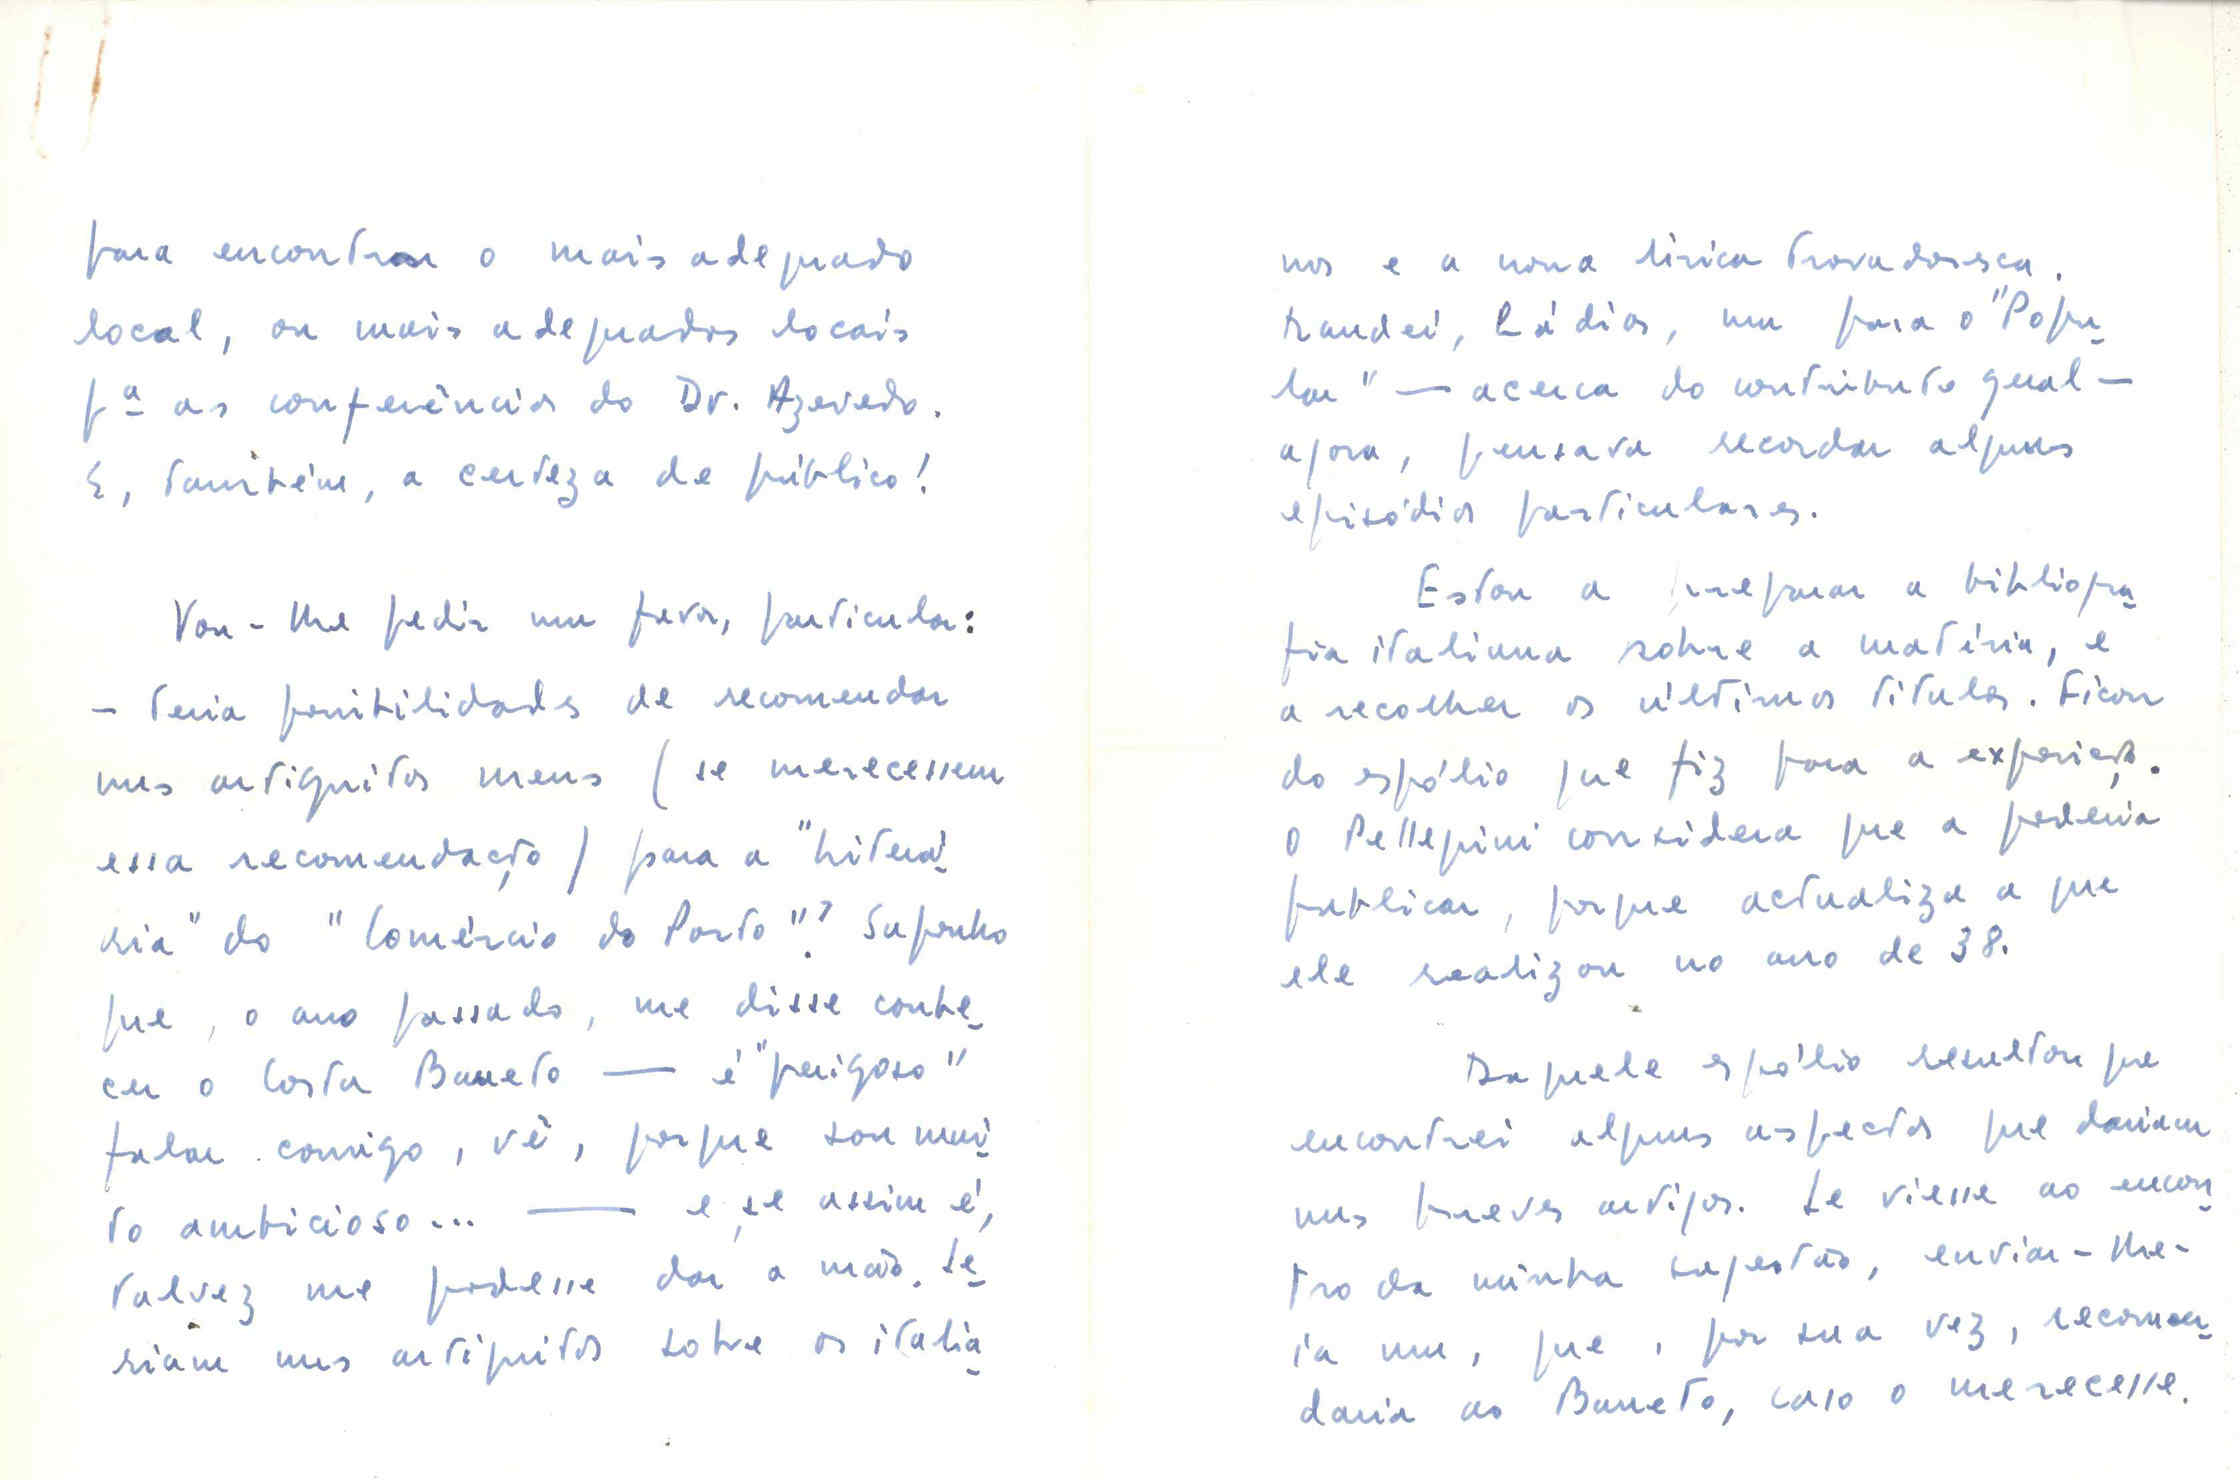 para encontrar o mais adequado
local, ou mais adequados locais
pª as conferências do Dr. Azevedo.
E, também, a certeza de público!
Vou-lhe pedir um favor, particular:
- teria possibilidades de recomendar
uns artiguitos meus (se merecessem
essa recomendação) para a "Literá-
ria" do "Comércio do Porto"? Suponho
que, o ano passado, me disse conhe-
cer o Costa Barreto — é "perigoso"
falar comigo, vê, porque sou mui-
to ambicioso... — e, se assim é,
talvez me pudesse dar a mão. Se-
riam uns artiguitos sobre os italia-
nos e a nossa lírica trovadoresca.
Mandei, há dias, um para o "Popu-
lar" — acerca do contributo geral —
agora, pensava recordar alguns
episódios particulares.
Estou a preparar a bibliogra-
fia italiana sobre a matéria, e
a recolher os últimos títulos. Ficou
do espólio que fiz para a exposição.
O Pellegrini considera que a poderia
publicar, porque actualiza a que
ele realizou no ano de 38.
Daquele espólio resultou que
encontrei alguns aspectos que dariam
uns breves artigos. Se viesse ao encon-
tro da minha sugestão, enviar-lhe-
ia um, que, por sua vez, recomen-
daria ao Barreto, caso o merecesse.